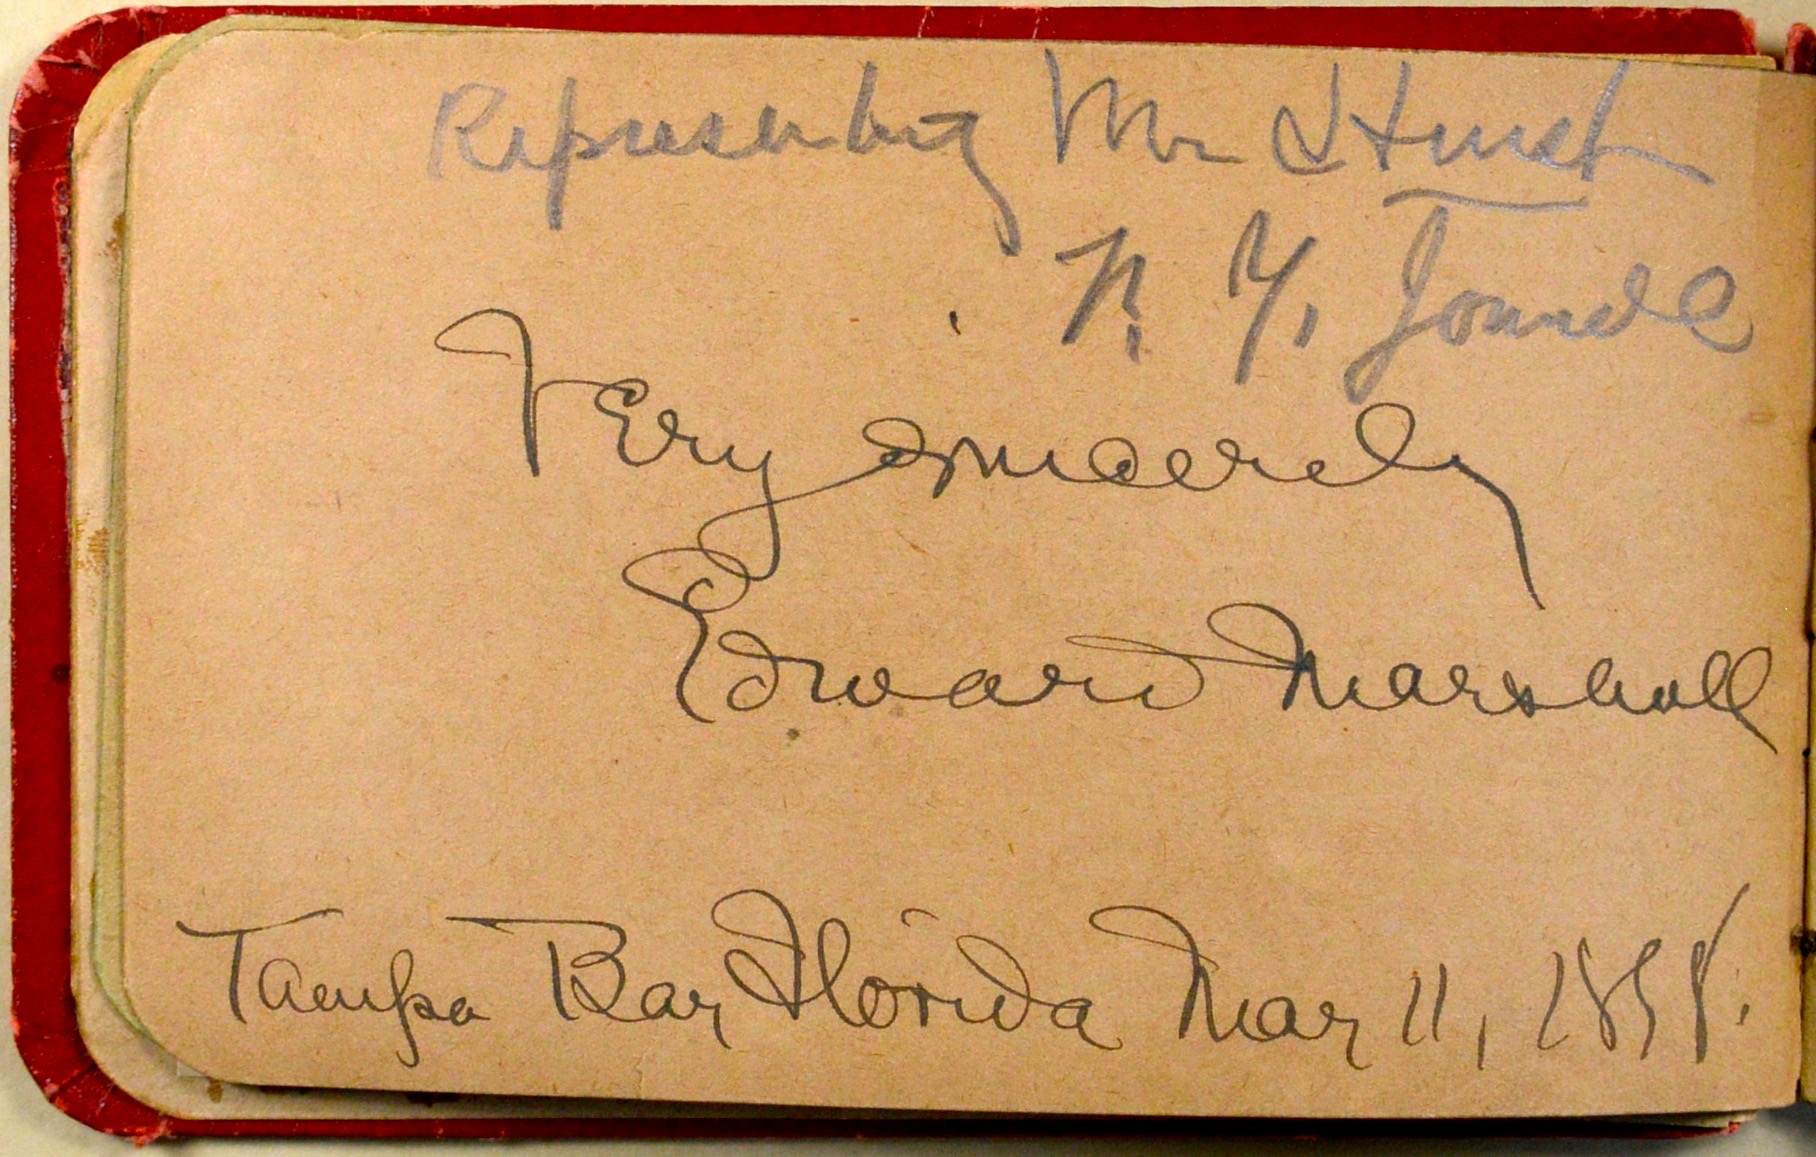 Representing Mr Hurst
N. Y. Journal
Very sincerely
Edward Marshall
Tampa Bay Florida May 11, 1898.